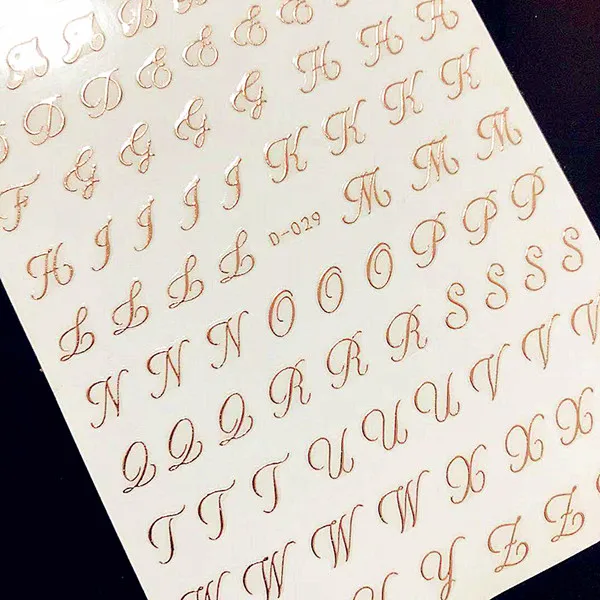 A A B B
D D E E E E
F G G G G H H H
H I I J J K K K K
L L L L D-029 M M M
N N N O O O P P P
Q Q Q R R R S S S S
T T T U U U V V V
W W W W X X X
Y Y Z Z